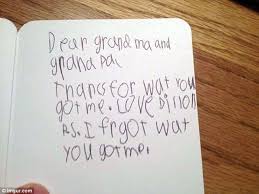 Dear grandma and
grandpa,
Thanxs for wat you
got me. Love Dillon
P.S. I frgot wat
you got me.
© imgur.com